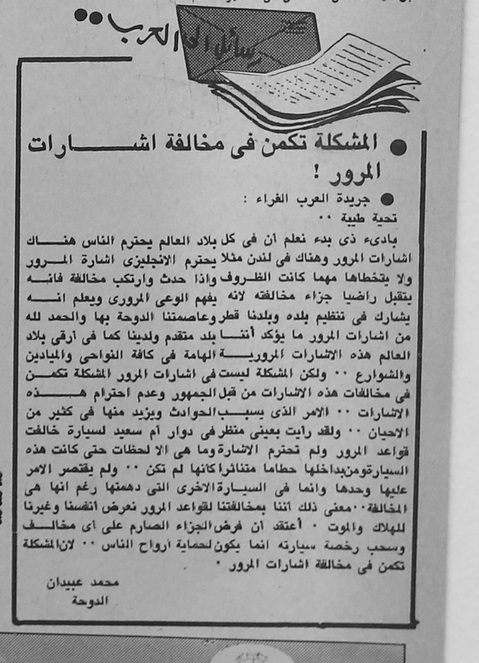 رسائل الى العرب ..
● المشكلة تكمن فى مخالفة اشـــارات
المرور !
● جريدة العرب الغراء :
تحية طيبة ..
بادىء ذى بدء نعلم أن فى كل بلاد العالم يحترم الناس هنـاك
اشارات المرور وهناك فى لندن مثلا يحترم الانجليزى اشارة المرور
ولا يتخطاها مهما كانت الظروف واذا حدث وارتكب مخالفة فانـه
يتقبل راضيا جزاء مخالفته لانه يفهم الوعى المرورى ويعلم انـه
يشارك فى تنظيم بلده وبلدنا قطر وعاصمتنا الدوحة بها والحمد لله
من اشارات المرور ما يؤكد أننـا بلد متقدم ولدينا كما فى أرقى بلاد
العالم هذه الاشارات المروريـة الهامة فى كافة النواحى والميادين
والشوارع .. ولكن المشكلة ليست فى اشارات المرور المشكلة تكمـن
فى مخالفات هذه الاشارات من قبل الجمهور وعدم احترام هـذه
الاشارات .. الامر الذى يسبـب الحوادث ويزيد منها فى كثير من
الاحيان .. ولقد رايت بعينى منظر فى دوار أم سعيد لسيارة خالفت
قواعد المرور ولم تحترم الاشارة وما هى الا لحظات حتى كانت هذه
السيارةومن بداخلها حطاما متناثرا كأنها لم تكن .. ولم يقتصر الامر
عليها وحدها وانما فى السيـارة الاخرى التى دهمتها رغم انها هى
المخالفة..معنى ذلك أننا بمخالفتنا لقواعد المرور نعرض أنفسنا وغيرنا
للهلاك والموت . أعتقد أن فرض الجزاء الصارم على أى مخالـف
وسحب رخصة سيارته انما يكون لحماية أرواح الناس .. لان المشكلة
تكمن فى مخالفة اشارات المرور .
محمد عبيدان
الدوحة